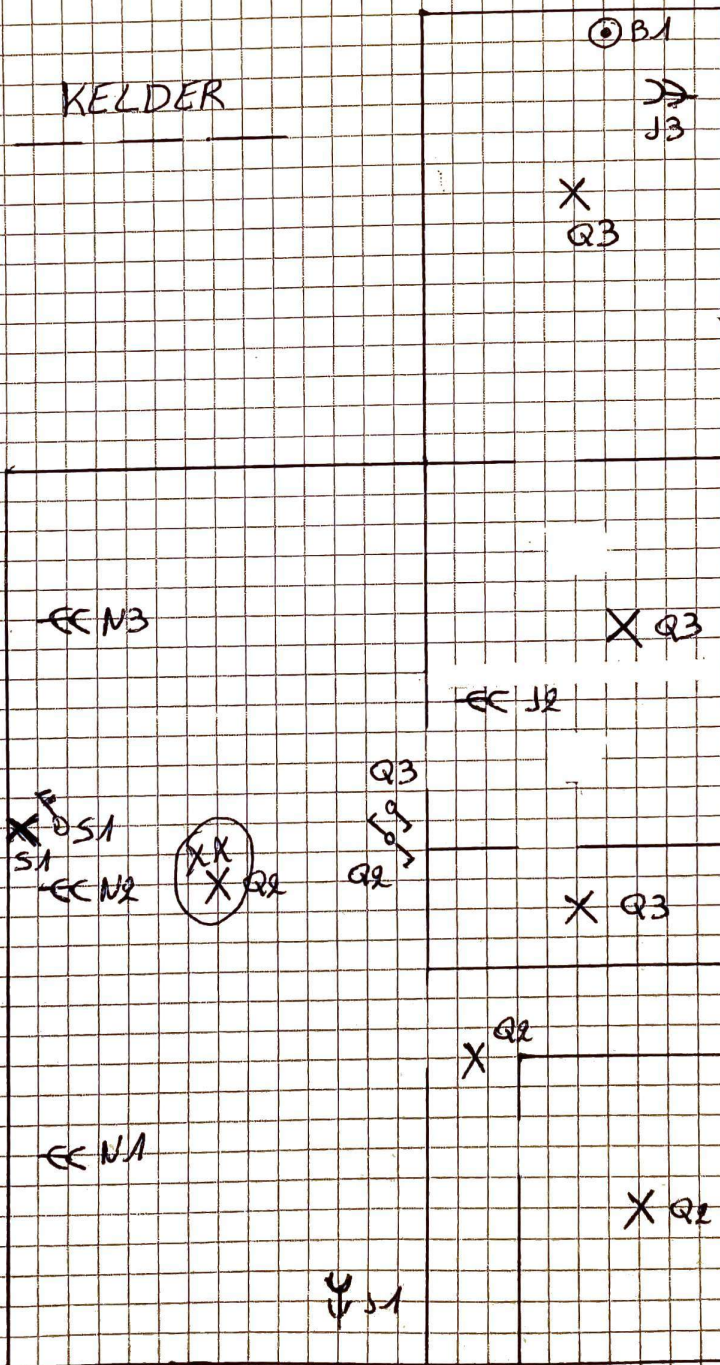 B1
KELDER
J3
Q3
N3
Q3
J2
Q3
S1
S1
N2
Q2
Q2
Q3
Q2
N1
Q2
J1